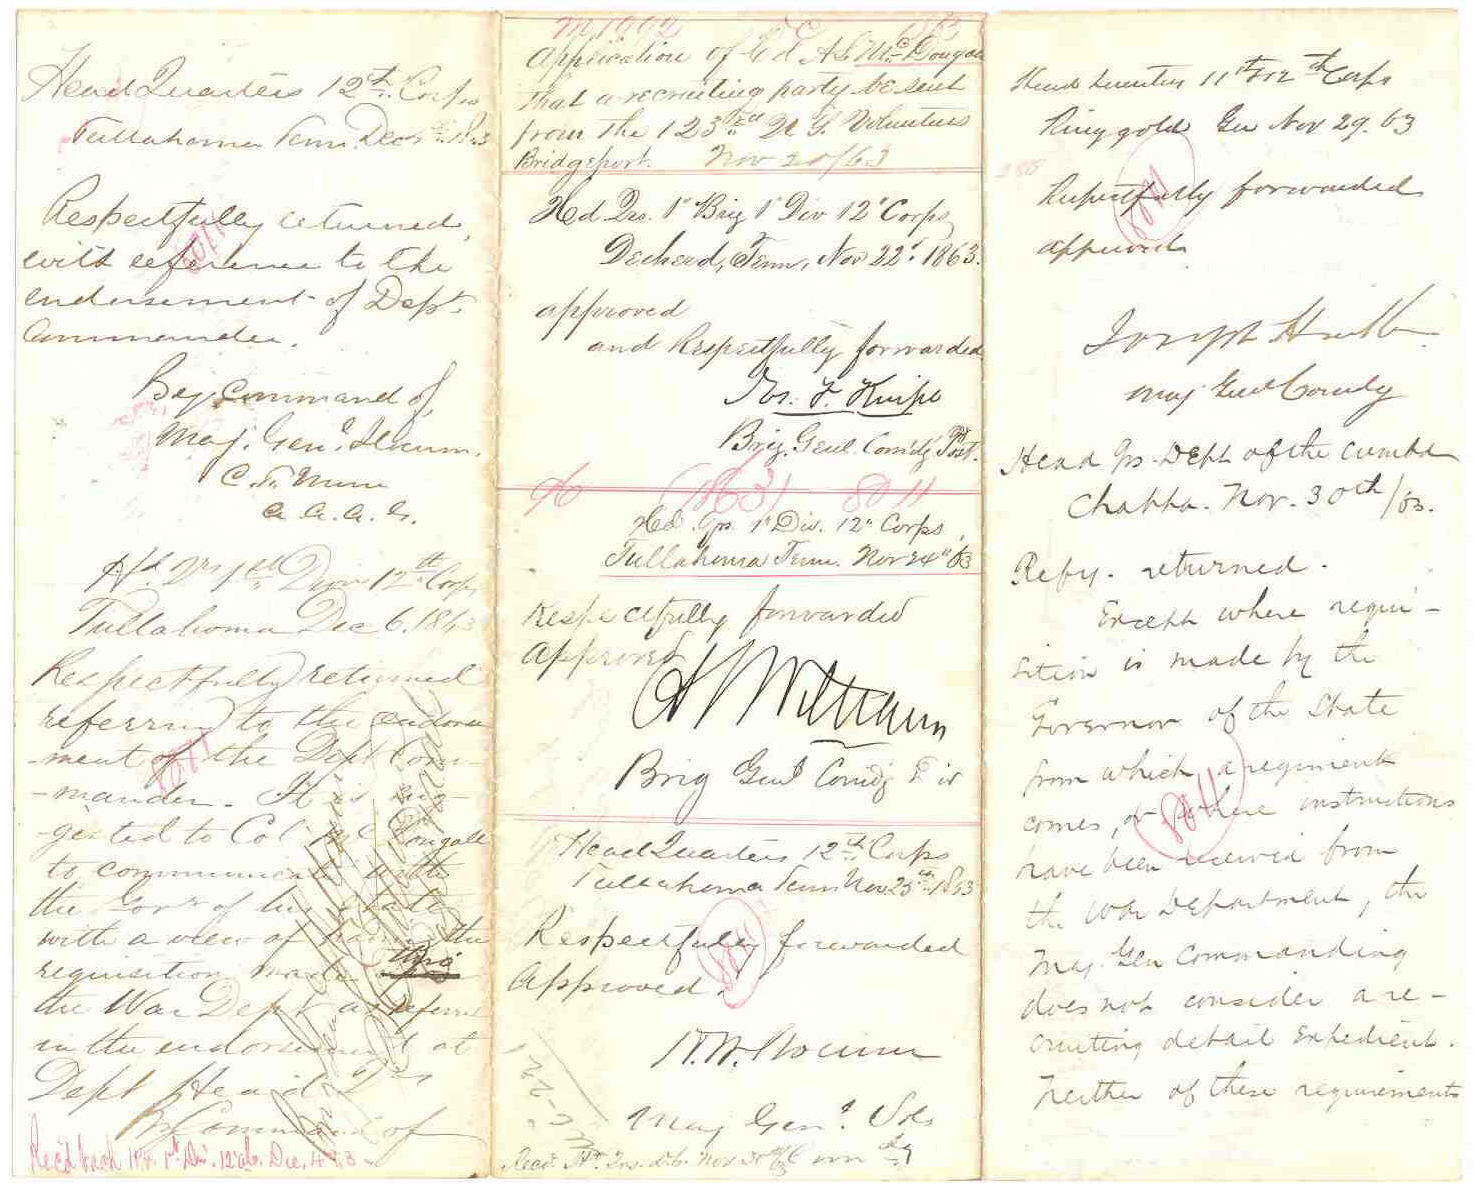 Head Quarters 12th Corps
Tullahoma Tenn. Dec 1863
Respectfully returned,
with reference to the
endorsement of Dept.
Commander.
By Command of
Maj. Genl. Slocum.
C. A. A. G.
A. A. A. G.
Hd Qrs 1st Divn 12th Corps
Tullahoma Dec 6. 1863
Respectfully returned
referring to the endorse
-ment of the Dept Com-
-mander. It is sug-
-gested to Col McDougall
to communicate with
the Govr of his State
with a view of having the
requisition made
the War Dept as referred
in the endorsement at
Dept Head Qrs
By Command of
Rec'd back Hd. 1st Div. 12 Dec. 4 63
M 1992
Application of Col A L McDougall
that a recruiting party be sent
from the 123rd N Y. Volunteers
Bridgeport. Nov 20/63
Hd Qrs. 1" Brig 1" Div 12" Corps
Decherd, Tenn, Nov 22d. 1863.
approved
and Respectfully forwarded
Jos. F. Knipe
Brig. Genl. Com'dg Post.
(1863) 8011
Hd. Qrs. 1" Div. 12" Corps,
Tullahoma Tenn. Nov 24" 63
Respectfully forwarded
Approved
A S Williams
Brig Genl Comdg Div
Head Quarters 12th Corps
Tullahoma Tenn Nov. 25th 1863
Respectfully forwarded
Approved.
8011
H. W. Slocum
Maj Genl. Vols
Comdg
Recd. Hd. Qrs. Nov 30th
Head Quarters 11th & 12th Corps
Ringgold Ga Nov 29. 63
Respectfully forwarded
approved
8011
Joseph Hooker
Maj Genl Comdg
Head Qrs. Dept of the Cumbd
Chatta. Nov. 30th/63.
Repy. returned.
Except where requi-
sition is made by the
Governor of the State
from which a regiment
comes, or where instructions
8011
have been received from
the War Department, the
Maj. Gen Commanding
does not consider a re-
cruiting detail expedient.
Neither of these requirements